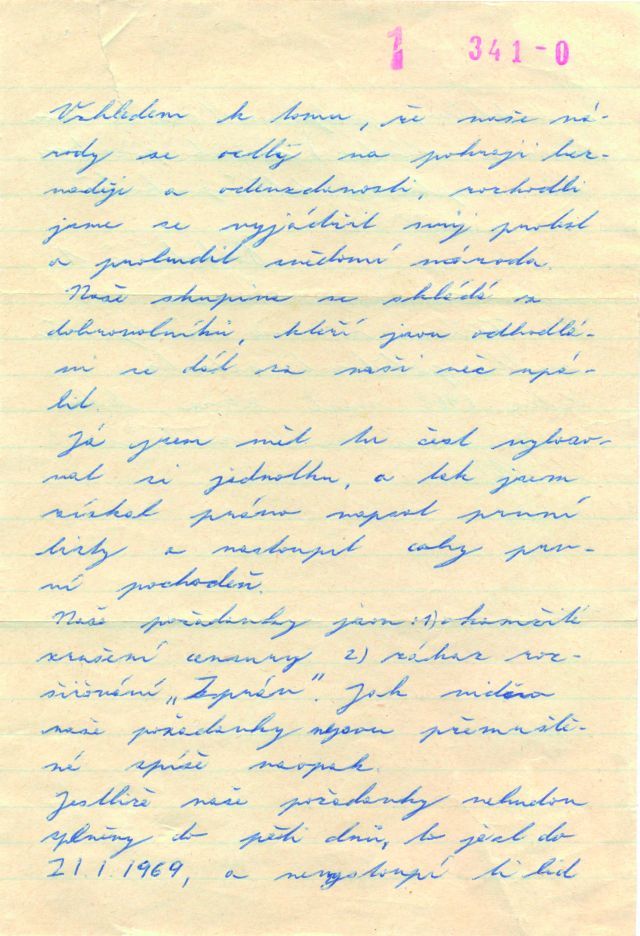 1 341-0
Vzhledem k tomu, že naše ná-
rody se octly na pokraji bez-
naděje a odevzdanosti, rozhodli
jsme se vyjádřit svůj protest
a probudit svědomí národa.
Naše skupina se skládá z
dobrovolníků, kteří jsou odhodlá-
ni se dát za naši věc upá-
lit.
Já jsem měl tu čest vyloso-
vat si jednotku, a tak jsem
získal právo napsat první
listy a nastoupit coby prv-
ní pochodeň.
Naše požadavky jsou: 1) okamžité
zrušení cenzury 2) zákaz roz-
šiřování „Zpráv". Jak vidíte
naše požadavky nejsou přemrště-
né spíše naopak.
Jestliže naše požadavky nebudou
splněny do pěti dnů, to jest do
21.1.1969, a nevystoupí li lid